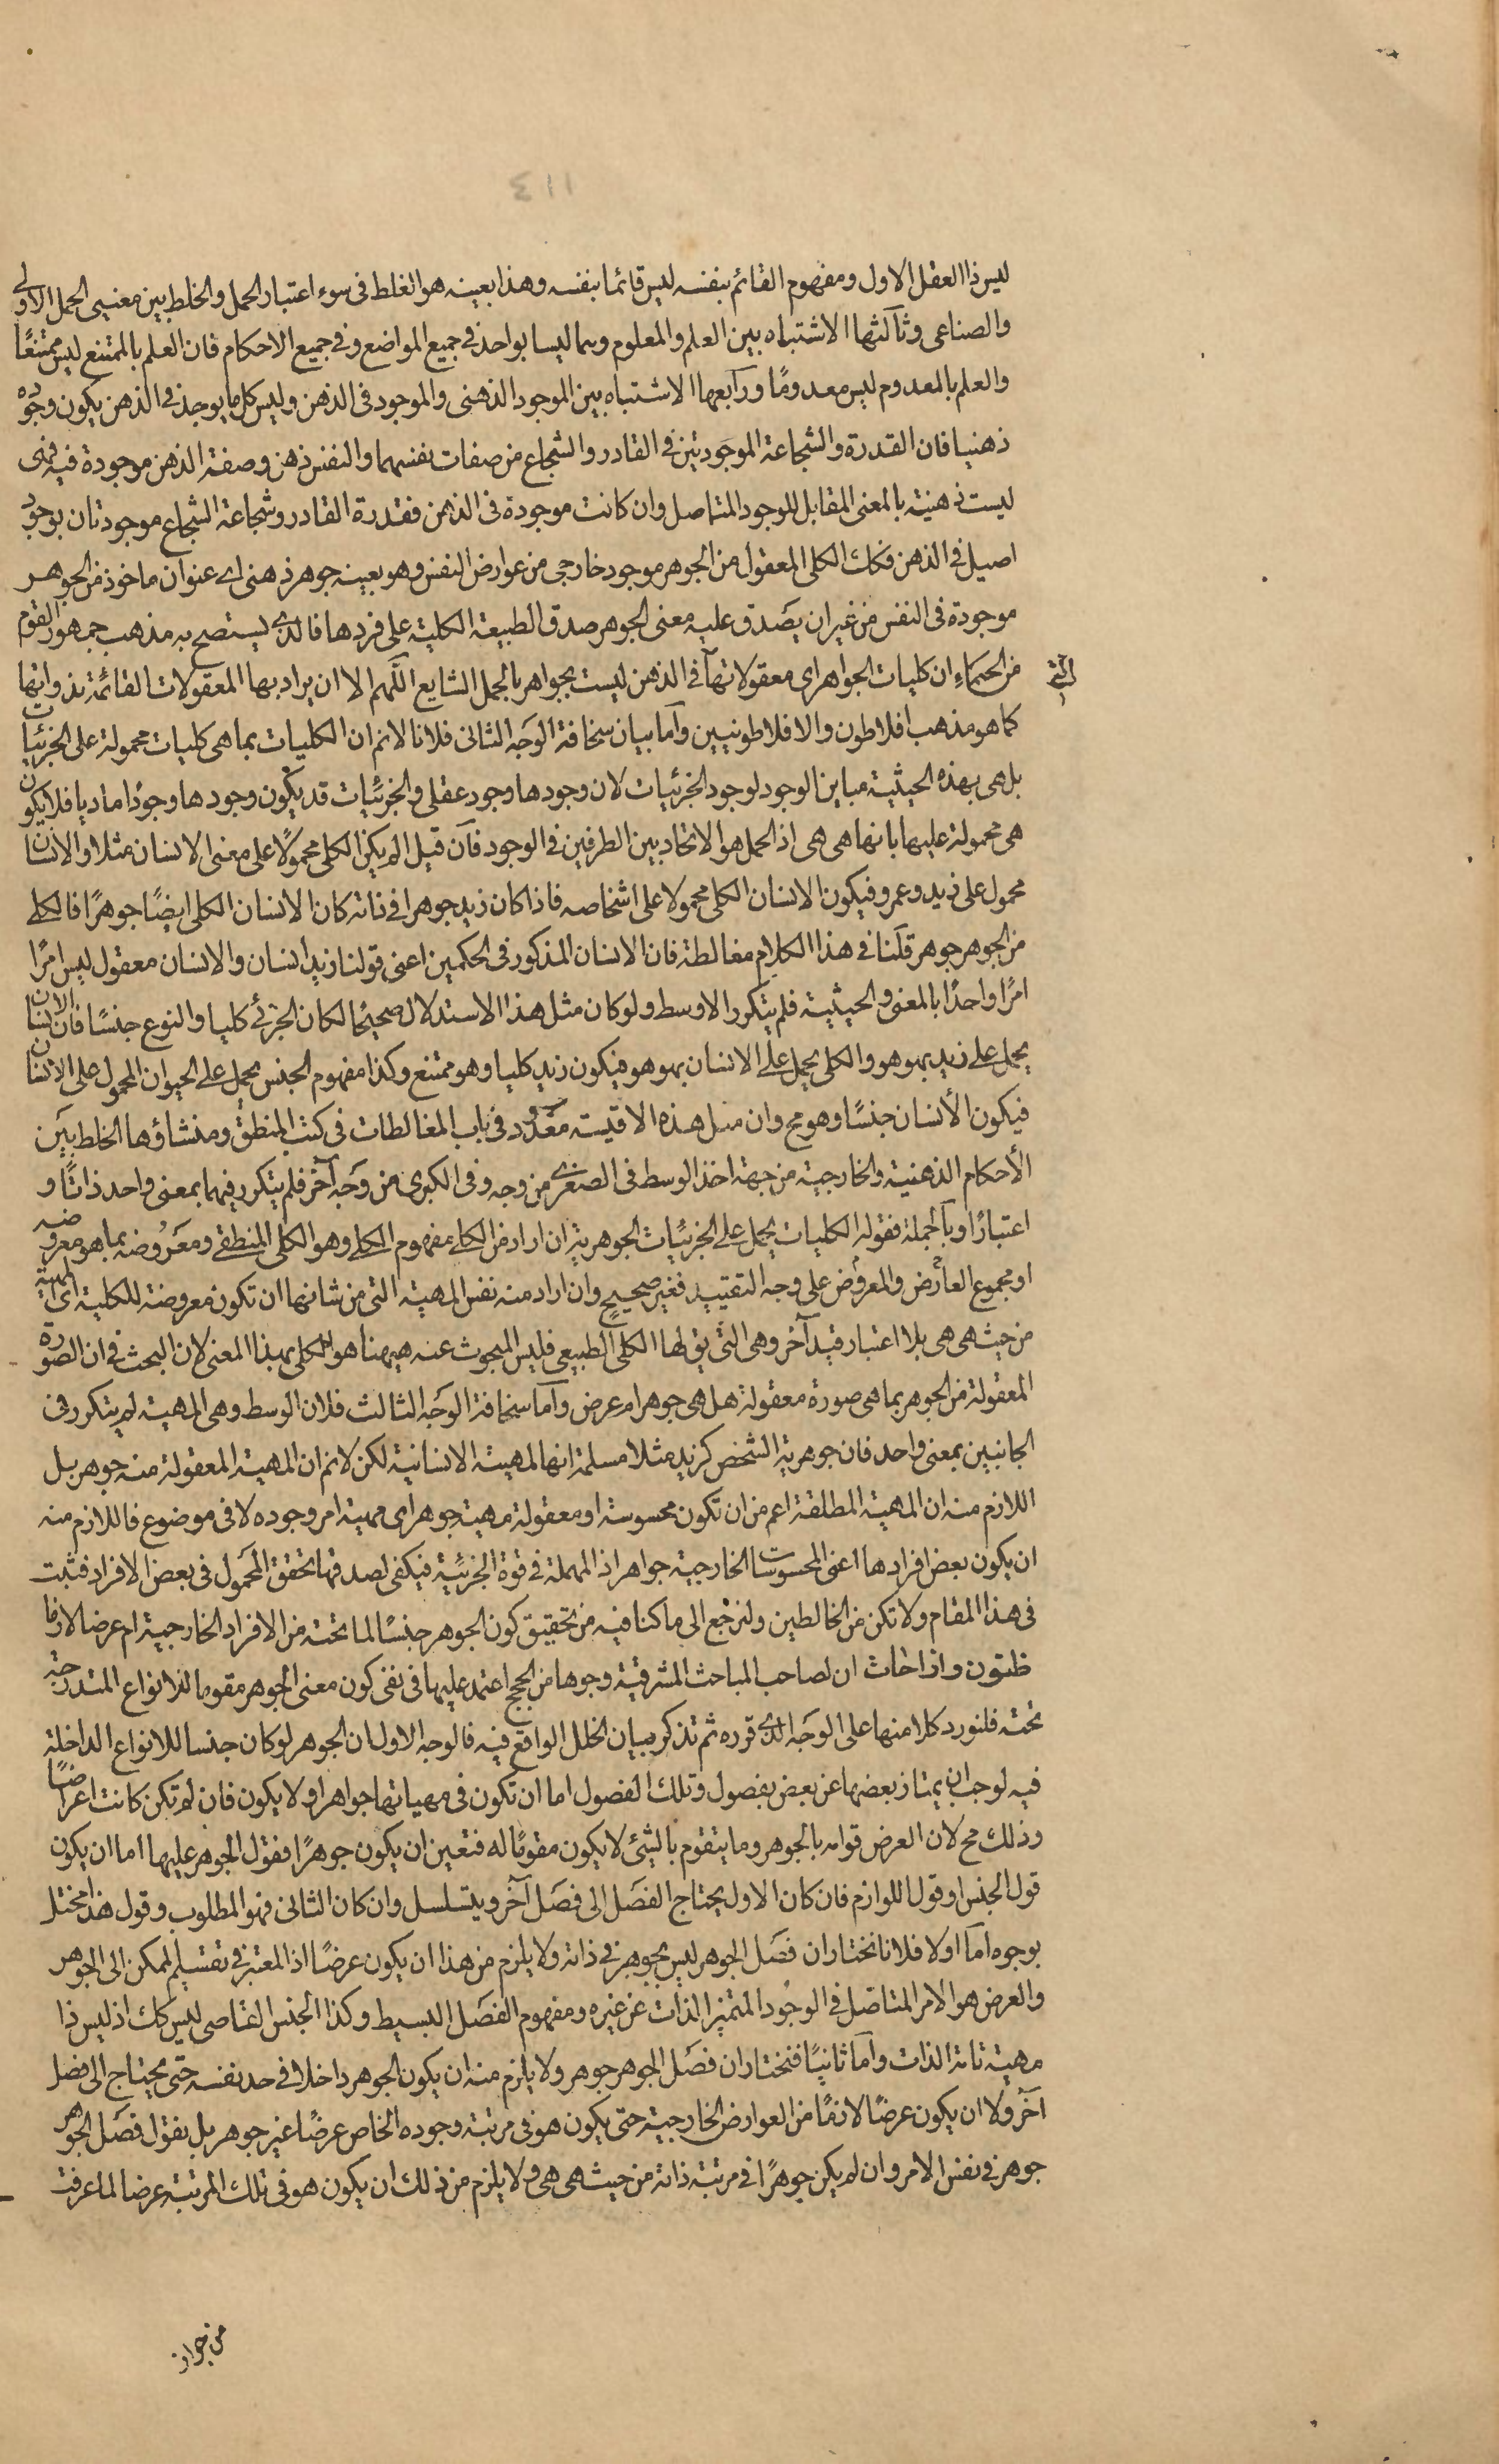 ٤١١
ليس ذا العقل الاول ومفهوم القائم بنفسه ليس قائما بنفسه وهذا بعينه هو الغلط فى سوء اعتبار الحمل والخلط بين معنيى الحمل الاولى
والصناعى وثالثها الاشتباه بين العلم والمعلوم وهما ليسا بواحد فى جميع المواضع وفى جميع الاحكام فان العلم بالممتنع ليس ممتنعًا
والعلم بالمعدوم ليس معدومًا ورابعها الاشتباه بين الموجود الذهنى والموجود فى الذهن وليس كل ما يوجد فى الذهن يكون وجوده
ذهنيا فان القدرة والشجاعة الموجودتين فى القادر والشجاع من صفات نفسهما والنفس ذهن وصفة الذهن موجودة فيه فهى
ليست ذهنية بالمعنى المقابل للوجود المتاصل وان كانت موجودة فى الذهن فقدرة القادر وشجاعة الشجاع موجودتان بوجود
اصيل فى الذهن فكك الكلى المعقول من الجوهر موجود خارجى من عوارض النفس وهو بعينه جوهر ذهنى اى عنوان ماخوذ من الجوهر
موجودة فى النفس من غير ان يصدق عليه معنى الجوهر صدق الطبيعة الكلية على فردها فالذى يستصح به مذهب جمهور القوم
من الحكماء ان كليات الجواهر اى معقولاتها فى الذهن ليست بجواهر بالحمل الشايع اللهم الا ان يراد بها المعقولات القائمة بذواتها
كما هو مذهب افلاطون والافلاطونيين واما بيان سخافة الوجه الثانى فلانا لانم ان الكليات بما هى كليات محمولة على الجزئيات
بل هى بهذه الحيثية مباين الوجود لوجود الجزئيات لان وجودها وجود عقلى والجزئيات قد يكون وجودها وجودًا ماديا فلا يكون
هى محمولة عليها بانها هى هى اذ الحمل هو الاتحاد بين الطرفين فى الوجود فان قيل الم يكن الكلى محمولًا على معنى الانسان مثلا والانسان
محمول على زيد وعمرو فيكون الانسان الكلى محمولا على اشخاصه فاذا كان زيد جوهرا فى ذاته كان الانسان الكلى ايضًا جوهرًا فالكلى
من الجوهر جوهر قلنا فى هذا الكلام مغالطة فان الانسان المذكور فى الحكمين اعنى قولنا زيد انسان والانسان معقول ليس امرًا
امرًا واحدًا بالمعنى والحيثية فلم يتكرر الاوسط ولو كان مثل هذا الاستدلال صحيحًا لكان الجزئى كليا والنوع جنسًا فان الانسان
يحمل على زيد بهو هو والكلى يحمل على الانسان بهو هو فيكون زيد كليا وهو ممتنع وكذا مفهوم الجنس يحمل على الحيوان المحمول على الانسان
فيكون الأنسان جنسًا وهو مح وان مثل هذه الاقيسة معدود فى باب المغالطات فى كتب المنطق ومنشاؤها الخلط بين
الأحكام الذهنية والخارجية من جهة اخذ الوسط فى الصغرى من وجه وفى الكبرى من وجه آخر فلم يتكرر فيهما بمعنى واحد ذاتًا و
اعتبارًا وبالجملة فقوله الكليات يحمل على الجزئيات الجوهرية ان اراد من الكلى مفهوم الكلى وهو الكلى المنطقى ومعروضه بما هو معروضه
او مجموع العارض والمعروض على وجه التقييد فغير صحيح وان اراد منه نفس المهية التى من شانها ان تكون معروضة للكلية اى المهية
من حيث هى هى بلا اعتبار قيد آخر وهى التى يق لها الكلى الطبيعى فليس المبحوث عنه هيهنا هو الكلى بهذا المعنى لان البحث فى ان الصورة
المعقولة من الجوهر بما هى صورة معقولة هل هى جوهر ام عرض واما سخافة الوجه الثالث فلان الوسط وهى المهية لم يتكرر فى
الجانبين بمعنى واحد فان جوهرية الشخص كزيد مثلا مسلمة انها لمهية الانسانية لكن لانم ان المهية المعقولة منه جوهر بل
اللازم منه ان المهية المطلقة اعم من ان تكون محسوسة او معقولة مهية جوهر اى مهية امر وجوده لا فى موضوع فاللازم منه
ان يكون بعض افرادها اعنى المحسوسات الخارجية جواهر اذ المهملة فى قوة الجزئية فيكفى لصدقها تحقق المحمول فى بعض الافراد فتثبت
فى هذا المقام ولا تكن من الخالطين ولنرجع الى ما كنا فيه من تحقيق كون الجوهر جنسًا لما تحته من الافراد الخارجية ام عرضا لازما
ان لصاحب المباحث المشرقية وجوها من الحجج اعتمد عليها فى نفى كون معنى الجوهر مقوما للانواع المندرجة
تحته فلنورد كلا منها على الوجه الذى قرره ثم تذكر ببيان الخلل الواقع فيه فالوجه الاول ان الجوهر لو كان جنسا للانواع الداخلة
فيه لوجب ان يمتاز بعضها عن بعض بفصول وتلك الفصول اما ان تكون فى مهياتها جواهر او لا يكون فان لم تكن كانت اعراضًا
وذلك مح لان العرض قوامه بالجوهر وما يتقوم بالشئ لا يكون مقومًا له فتعين ان يكون جوهرًا فقول الجوهر عليها اما ان يكون
قول الجنس او قول اللوازم فان كان الاول يحتاج الفصل الى فصل آخر ويتسلسل وان كان الثانى فهو المطلوب وقول هذا مختل
بوجوه اما اولا فلانا نختار ان فصل الجوهر ليس بجوهر فى ذاته ولا يلزم من هذا ان يكون عرضًا اذ المعتبر فى تقسيم الممكن الى الجوهر
والعرض هو الامر المتاصل فى الوجود المتميز الذات عن غيره ومفهوم الفصل البسيط وكذا الجنس القاصى ليس كك اذ ليس ذا
مهية تامة الذات واما ثانيًا فنختار ان فصل الجوهر جوهر ولا يلزم منه ان يكون الجوهر داخلا فى حد نفسه حتى يحتاج الى فصل
آخر ولا ان يكون عرضًا لازمًا من العوارض الخارجية حتى يكون هو فى مرتبة وجوده الخاص عرضًا غير جوهر بل نقول فصل الجوهر
جوهر فى نفس الامر وان لم يكن جوهرًا فى مرتبة ذاته من حيث هى هى ولا يلزم من ذلك ان يكون هو فى تلك المرتبة عرضا لما عرفت
من جواز